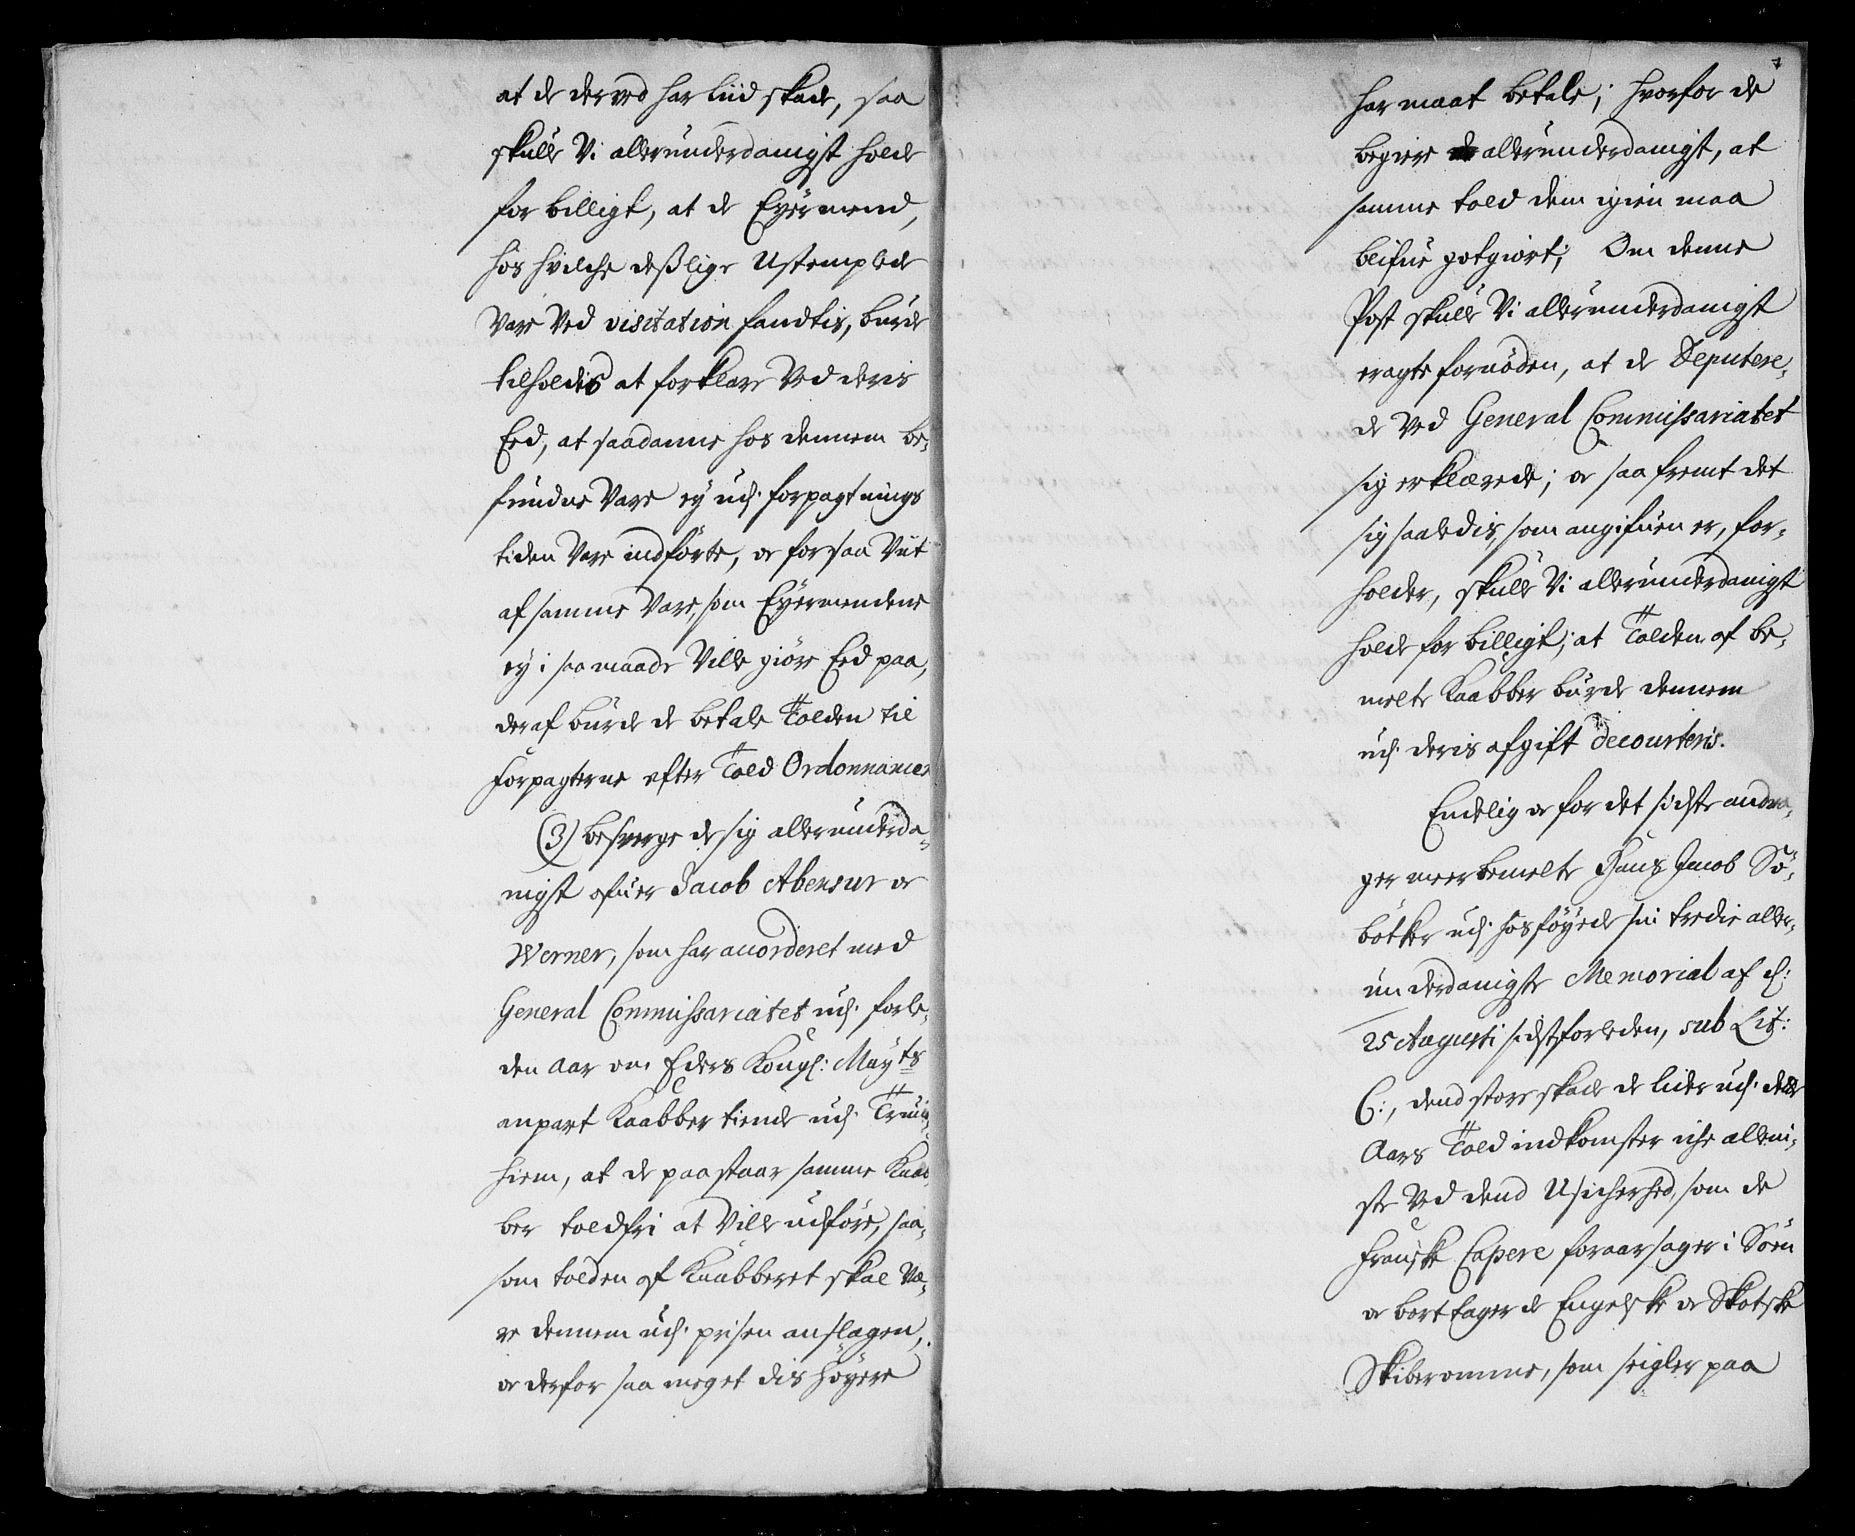 at de derved har liid skade, saa
skulle Vi allerunderdanigst holde
for billigt, at de Eyermend,
hos hvilche deßlige Ustemplede
Vare Ved visitation fandtis, burde
tilholdes at forklare Ved deris
Eed, at saadanne hos dennem be-
fundne Vare ey udj forpagtnings
tiden Vare indførte, oc for saa Viit
af samme Vare, som Eyermendene
ey i saa maade Ville giøre Eed paa,
deraf burde de betale Tolden til
Forpagterne efter Told Ordonnancen
(3) besverge de sig allerunderda-
nigst ofuer Jacob Abensur oc
Werner, som har accorderet med
General Commissariatet udj forle-
den Aar om Eders Kongl: Mayts
anpart Kaabber tiende udj Trund-
hiem, at de paastaar samme Kaab-
ber toldfri at Ville udføre, saa-
som tolden af Kaabberet skal Væ-
re dennem udj prisen anslagen,
oc derfor saa meget dis høyere
har maat betale; hvorfor de
begiere allerunderdanigst, at
samme told dem igien maa
blifue gotgiort; Om denne
Post skulle Vi allerunderdanigst
eragte fornøden, at de Deputere-
de Ved General Commissariatet
sig erklærede; oc saa fremt det
sig saaledis, som angifuen er, for-
holder, skulle Vi allerunderdanigst
holde for billigt, at Tolden af be-
melte Kaabber burde dennem
udj deris afgift decourteris.
Endelig oc for det sidste andra-
ger meerbemelte Hans Jacob Sø-
bøtker udj hosføyede sin tredie aller-
underdanigste Memorial af d:
25 Augusti sidstforleden, sub Lit:
C:, dend store skade de lider udj dette
Aars Told indkomster iche alleni-
ste Ved dend Usicherhed, som de
Franske Capere foraarsager i Søen
oc borttager de Engelske oc Skotske
Skiberomme, som seigler paa